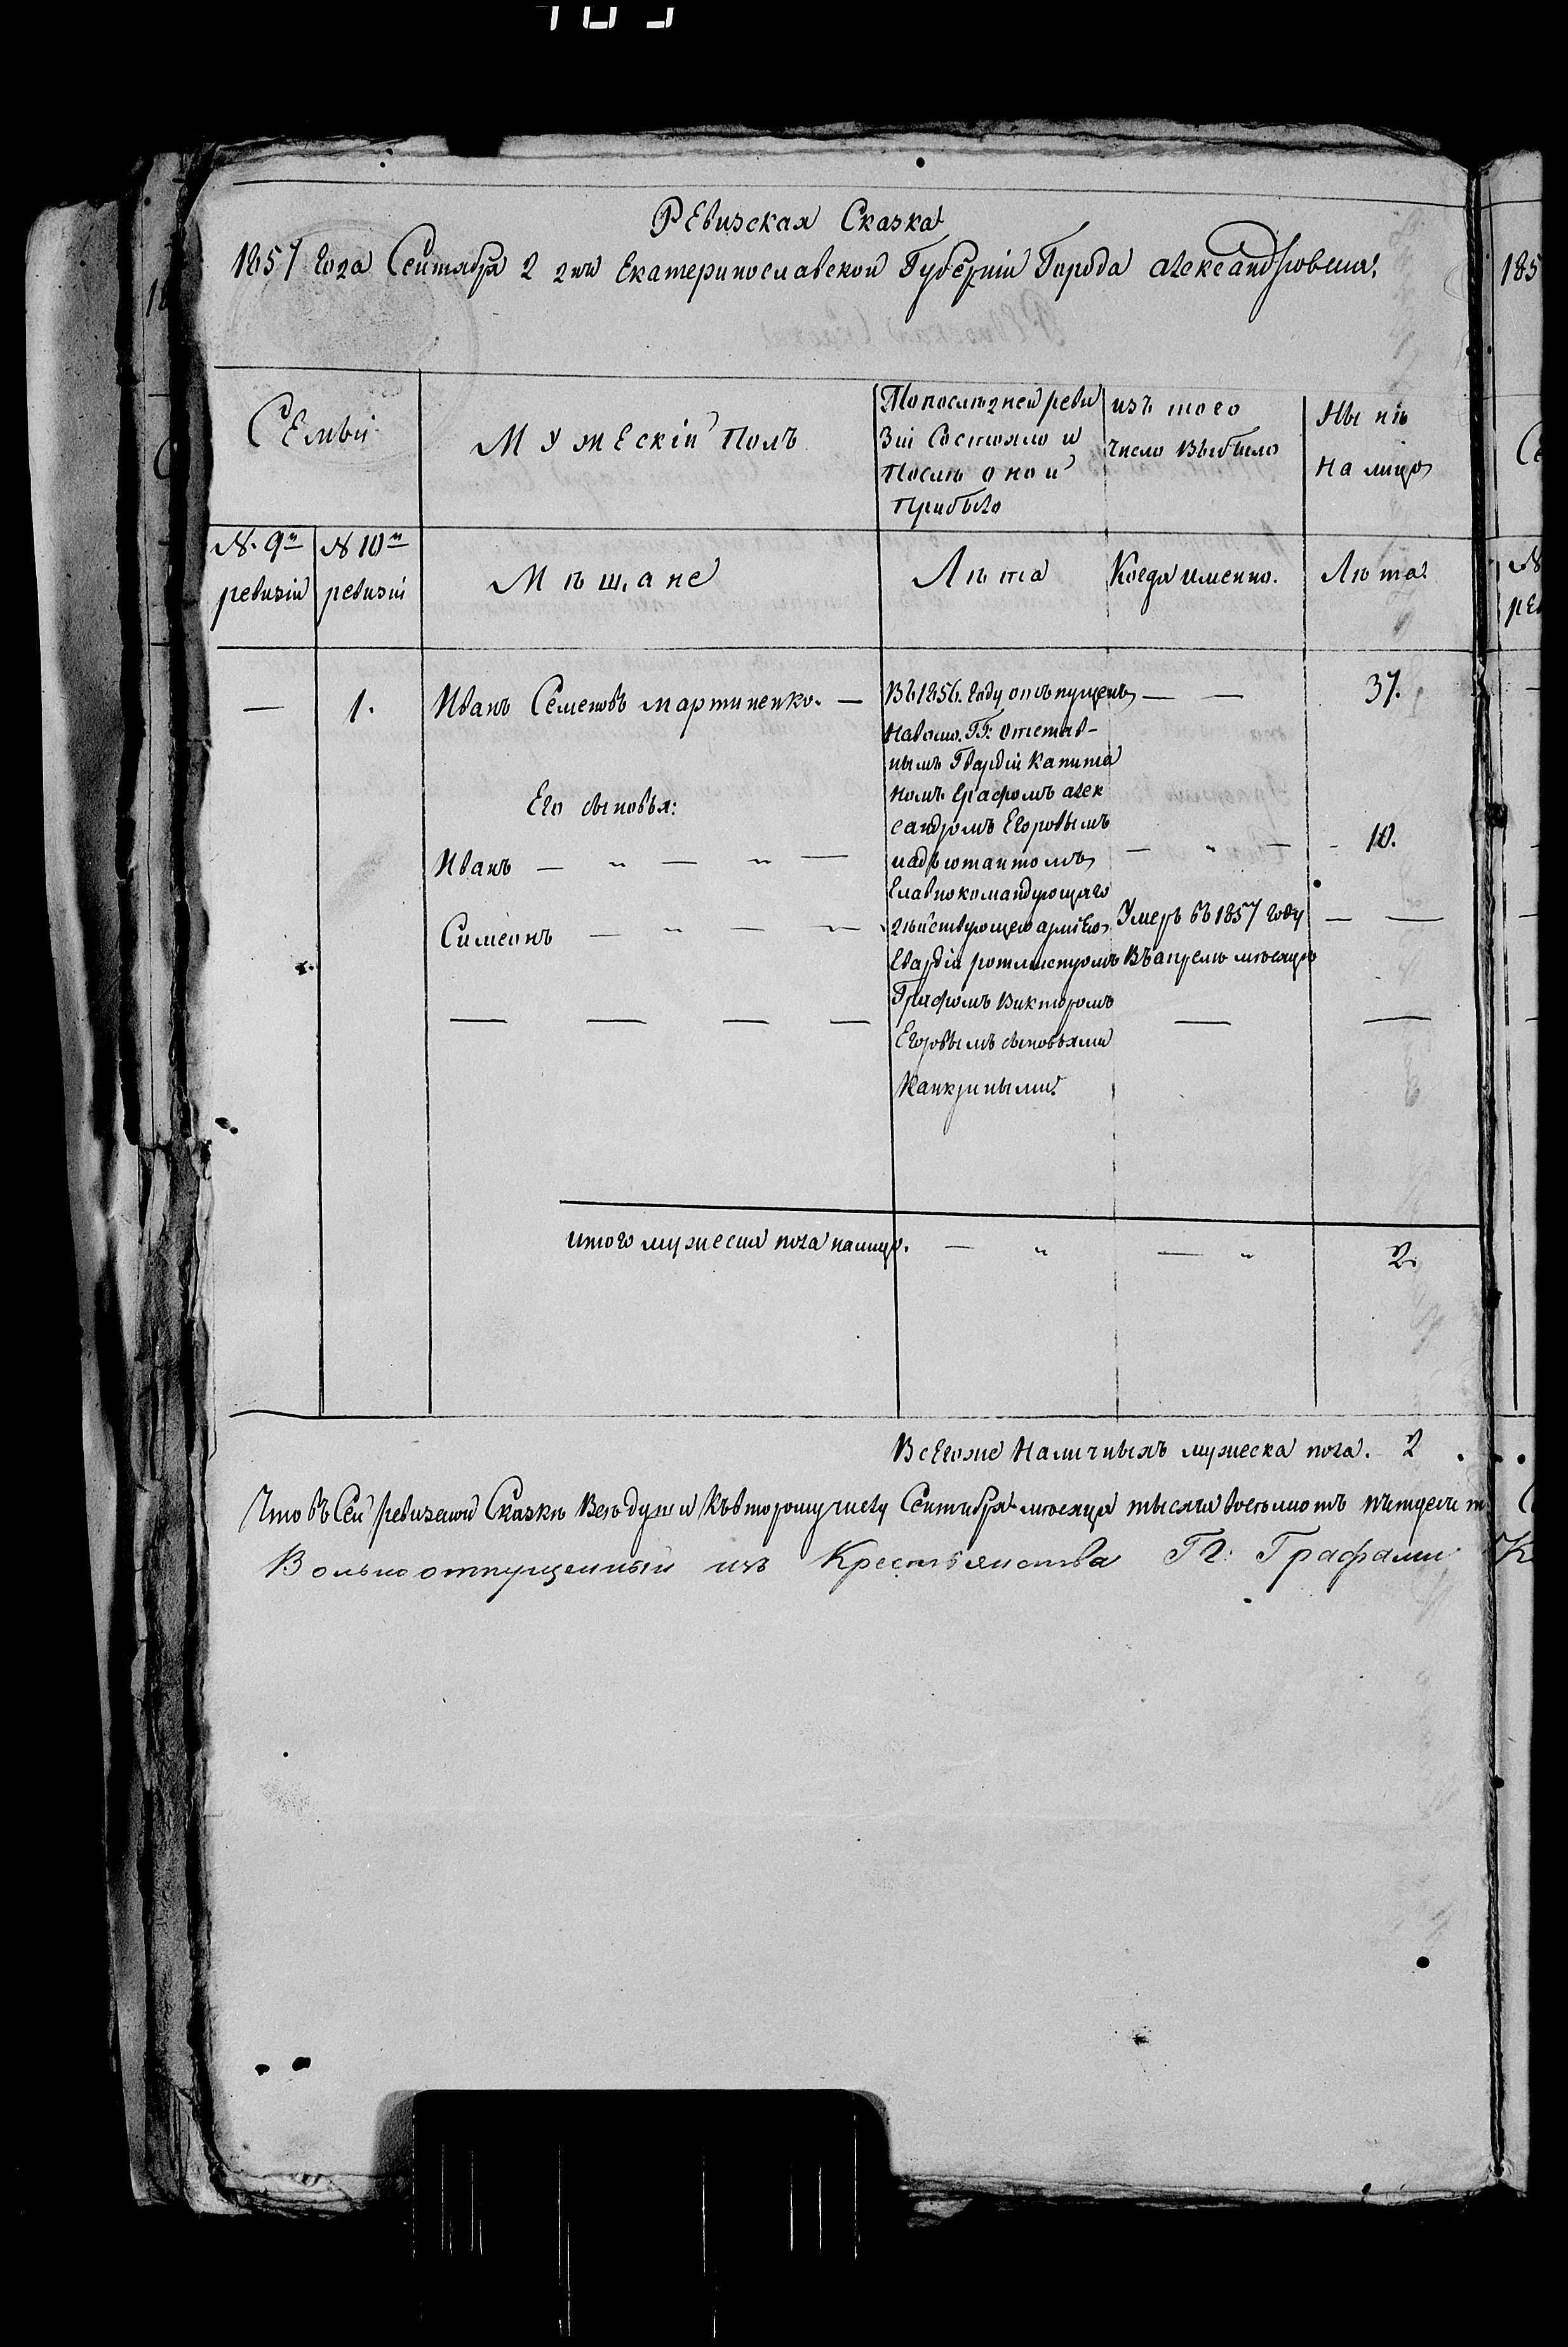 Ревизская Сказка
1857 года Сентября 2 дня Екатеринославской Губерніи Города Александровска.
Семьи
Мужескій Полъ
По последней реви
зіи Состояло и
После оной
прибыло
изъ того
число выбыло
Ныне
на лицо
№. 9й
ревизіи
№ 10й
ревизіи
Мѣщане
Лѣта
Когда именно.
Лѣта
—
1.
Иванъ Семеновъ Мартиненко. —
Въ 1856. году отъпущенъ
наволю. ГГ: отстав-
нымъ Гвардіи капита
номъ Графомъ Алек
сандромъ Егоровымъ
иадъютантомъ
Главнокомандующаго
действующею арміею
Гвардіи ротмистромъ
Графомъ Викторомъ
Егоровымъ сыновьями
Канкриными.
— —
37.
Его сыновья:
Иванъ — „ — „ —
— „ —
10.
Симеонъ — „ — „
Умеръ въ 1857 году
Въ апреле месяце
— —
— — — —
—
—
итого мужеска пола налицо.
— „
— „
2.
Всегоже Наличныхъ мужеска пола. 2
Что въ Сей ревизской Сказке Все души Къвторому числу Сентября месяца тысяча восемьсотъ
Вольноотпущенный изъ Крестьянства ГГ: Графами
185